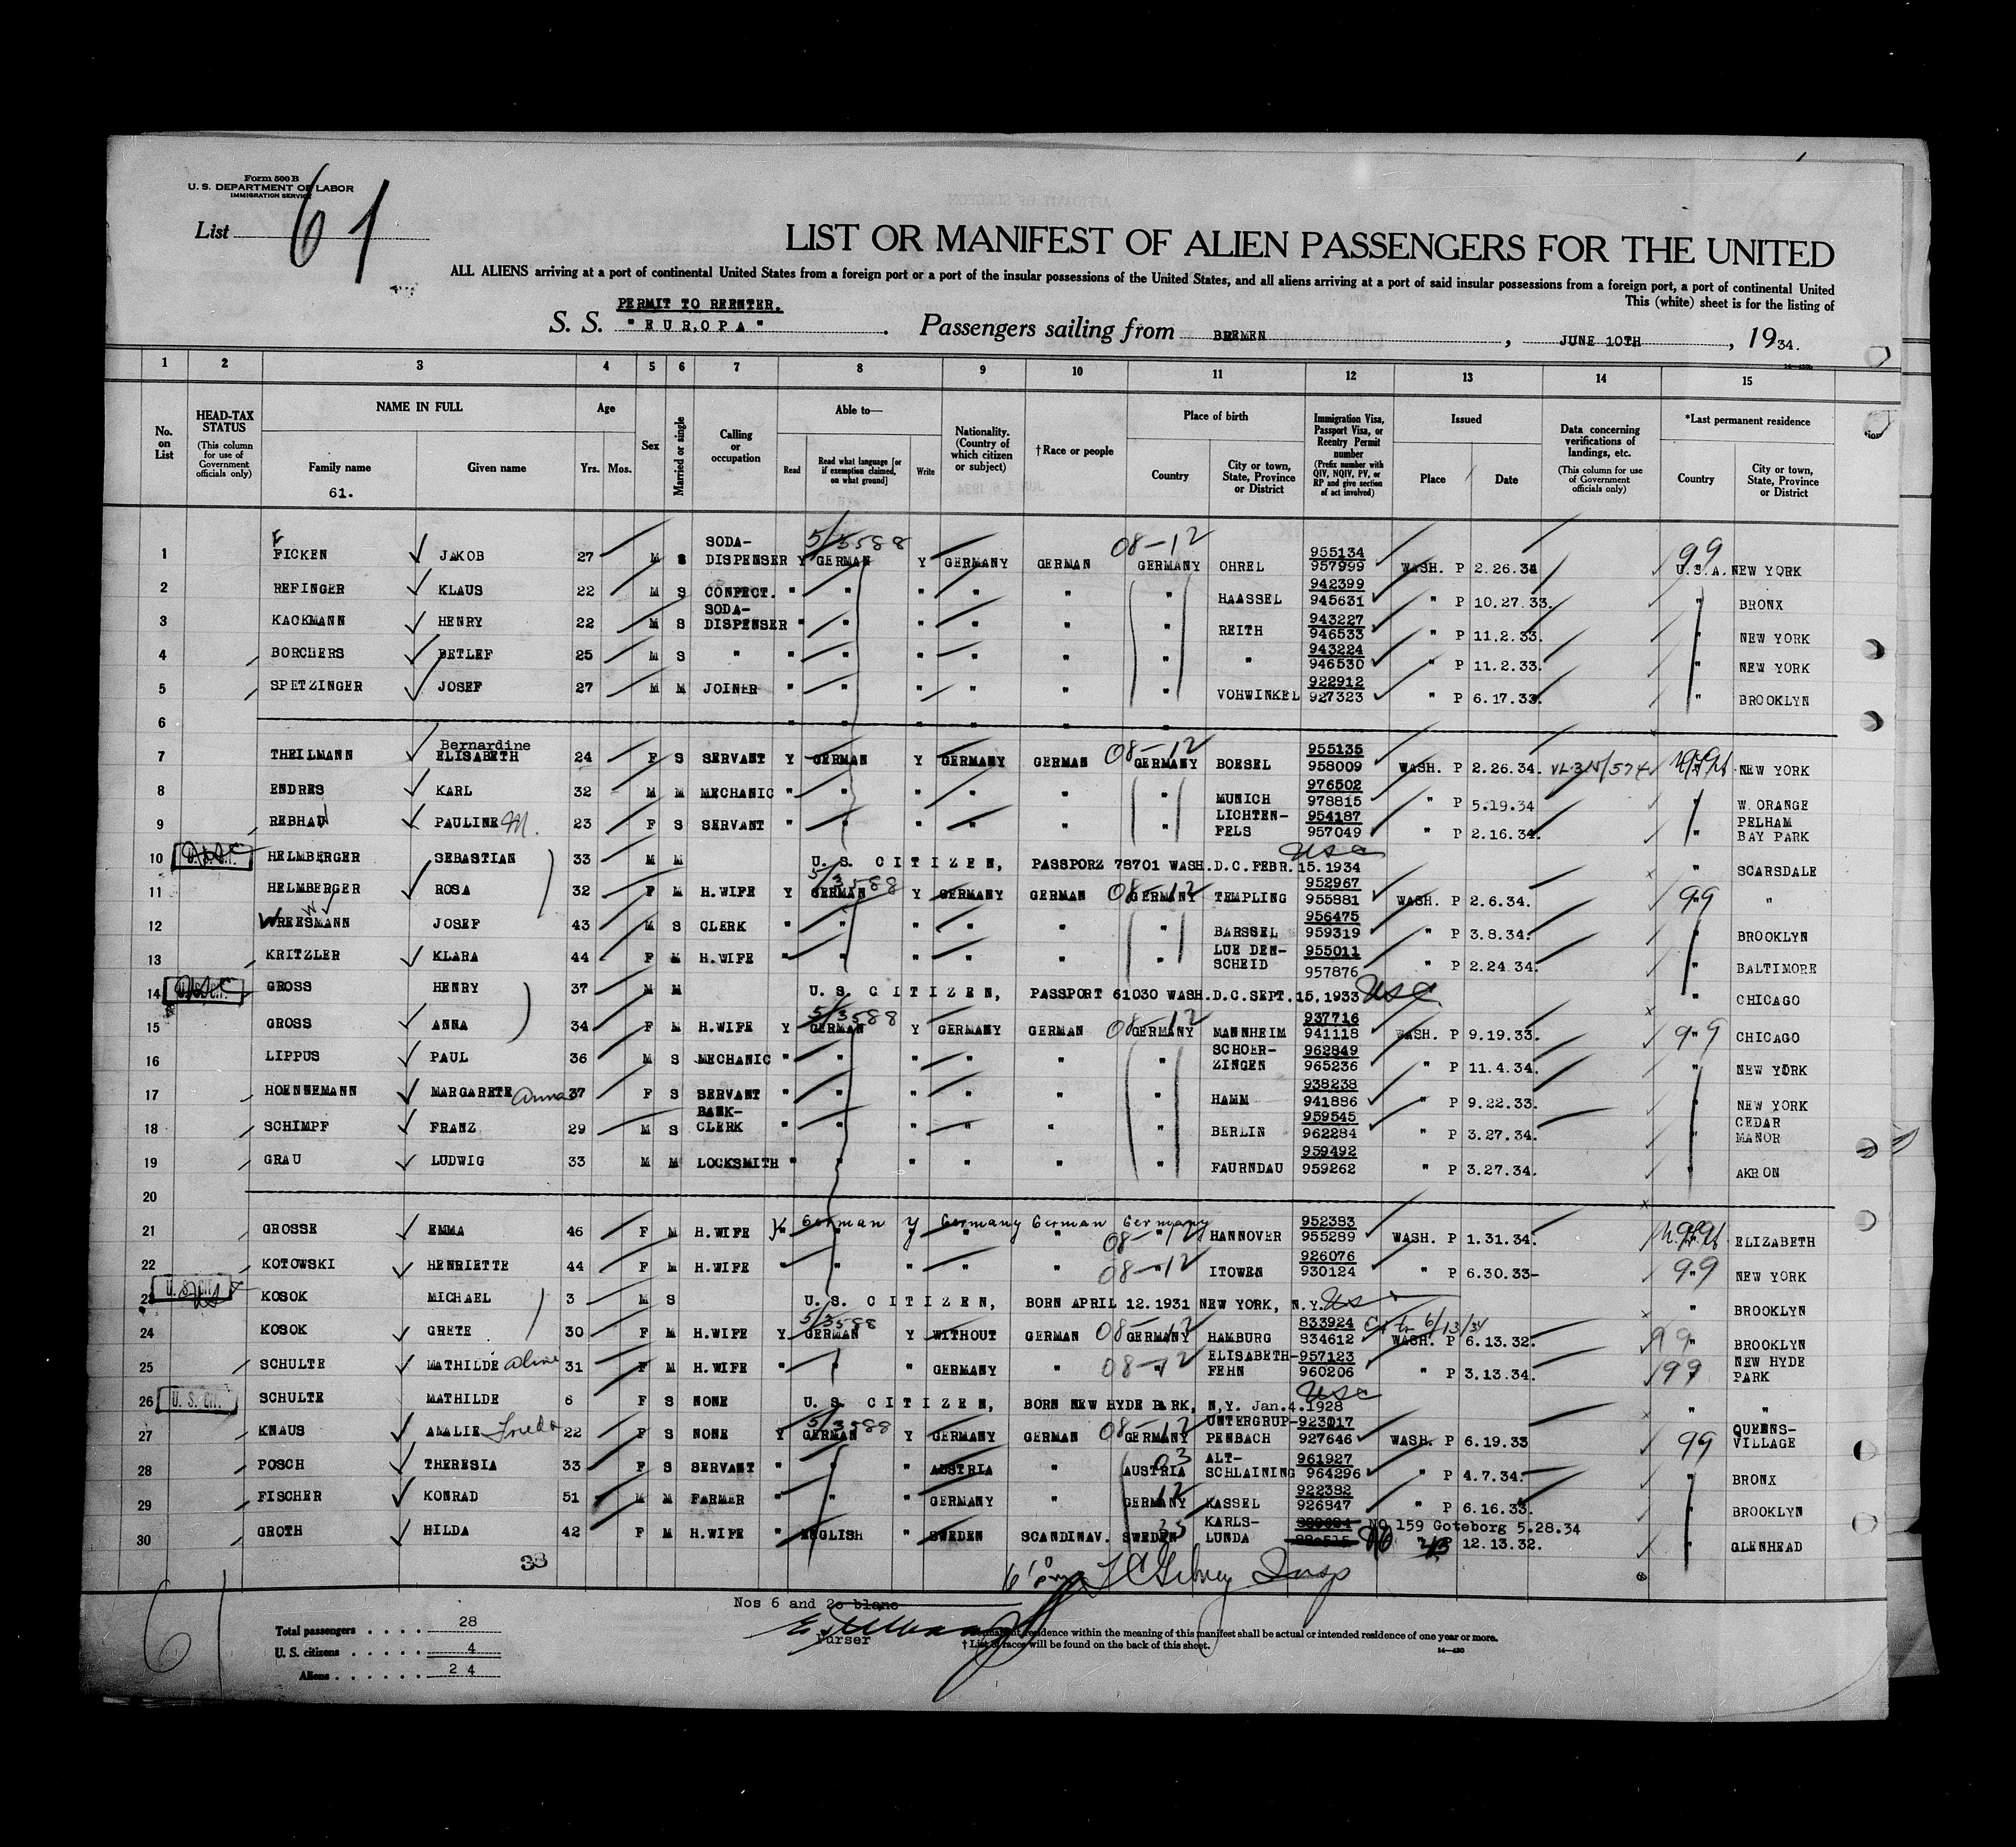 Form 500 B
U. S. DEPARTMENT OF LABOR
IMMIGRATION SERVICE
List 61
LIST OR MANIFEST OF ALIEN PASSENGERS FOR THE UNITED
ALL ALIENS arriving at a port of continental United States from a foreign port or a port of the insular possessions of the United States, and all aliens arriving at a port of said insular possessions from a foreign port, a port of continental United
This (white) sheet is for the listing of
PERMIT TO REENTER.
S. S. "EUROPA" Passengers sailing from BREMEN, JUNE 10TH, 1934.
1 2 3 4 5 6 7 8 9 10 11 12 13 14 15
No. on List
HEAD-TAX STATUS (This column for use of Government officials only)
NAME IN FULL Family name Given name
61.
Age Yrs. Mos.
Sex
Married or single
Calling or occupation
Able to— Read Read what language [or if exemption claimed, on what ground] Write
Nationality. (Country of which citizen or subject)
†Race or people
Place of birth Country City or town, State, Province or District
Immigration Visa, Passport Visa, or Reentry Permit number (Prefix number with QIV, NQIV, PV, or RP and give section of act involved)
Issued Place Date
Data concerning verifications of landings, etc. (This column for use of Government officials only)
*Last permanent residence Country City or town, State, Province or District
1 FICKEN JAKOB 27 M S SODA-DISPENSER Y GERMAN Y GERMANY GERMAN 08-12 GERMANY OHREL 955134 957999 WASH. P 2.26.34 99 U.S.A. NEW YORK
2 REFINGER KLAUS 22 M S CONFECT. " " " " " " HAASSEL 942399 945631 " P 10.27.33. " BRONX
3 KACKMANN HENRY 22 M S SODA-DISPENSER " " " " " " REITH 943227 946533 " P 11.2.33. " NEW YORK
4 BORCHERS DETLEF 25 M S " " " " " " " " 943224 946530 " P 11.2.33. " NEW YORK
5 SPETZINGER JOSEF 27 M M JOINER " " " " " " VOHWINKEL 922912 927323 " P 6.17.33. " BROOKLYN
6 " " " " " "
7 THEILMANN Bernardine ELISABETH 24 F S SERVANT Y GERMAN Y GERMANY GERMAN 08-12 GERMANY BOESEL 955135 958009 WASH. P 2.26.34. NEW YORK
8 ENDRES KARL 32 M M MECHANIC " " " " " " MUNICH 976502 978815 " P 5.19.34 " W. ORANGE
9 REBHAU PAULINE M. 23 F S SERVANT " " " " " " LICHTEN-FELS 954187 957049 " P 2.16.34. " PELHAM BAY PARK
10 HELMBERGER SEBASTIAN 33 M M U. S. CITIZEN, PASSPORZ 78701 WASH.D.C.FEBR.15.1934 USC " SCARSDALE
11 HELMBERGER ROSA 32 F M H.WIFE Y 5/3588 GERMAN Y GERMANY GERMAN 08-12 GERMANY TEMPLING 952967 955881 WASH. P 2.6.34. 99 "
12 WREESMANN JOSEF 43 M S CLERK " " " " " " BARSSEL 956475 959319 " P 3.8.34. " BROOKLYN
13 KRITZLER KLARA 44 F M H.WIFE " " " " " " LUEDEN-SCHEID 955011 957876 " P 2.24.34. " BALTIMORE
14 GROSS HENRY 37 M M U. S. CITIZEN, PASSPORT 61030 WASH.D.C.SEPT.15.1933 USC " CHICAGO
15 GROSS ANNA 34 F M H.WIFE Y 5/3588 GERMAN Y GERMANY GERMAN 08-12 GERMANY MANNHEIM 937716 941118 WASH. P 9.19.33. 99 CHICAGO
16 LIPPUS PAUL 36 M S MECHANIC " " " " " " SCHOER-ZINGEN 962849 965236 " P 11.4.34. " NEW YORK
17 HOENNEMANN MARGARETE Anna 37 F S SERVANT " " " " " " HAMM 938238 941886 " P 9.22.33. " NEW YORK
18 SCHIMPF FRANZ 29 M S BANK-CLERK " " " " " " BERLIN 959545 962284 " P 3.27.34. " CEDAR MANOR
19 GRAU LUDWIG 33 M M LOCKSMITH " " " " " " FAURNDAU 959492 959262 " P 3.27.34. " AKRON
20
21 GROSSE EMMA 46 F M H.WIFE Y German Y Germany German Germany 08-12 HANNOVER 952383 955289 WASH. P 1.31.34. ELIZABETH
22 KOTOWSKI HENRIETTE 44 F M H.WIFE " " " " " 08-12 ITOWEN 926076 930124 " P 6.30.33- 99 NEW YORK
23 U. S. CIT. KOSOK MICHAEL 3 M S U. S. CITIZEN, BORN APRIL 12.1931 NEW YORK, N.Y. " BROOKLYN
24 KOSOK GRETE 30 F M H.WIFE Y 5/3588 GERMAN Y WITHOUT GERMAN 08-12 GERMANY HAMBURG 833924 834612 6/13/34 WASH. P 6.13.32. 99 BROOKLYN
25 SCHULTE MATHILDE Aline 31 F M H.WIFE " " " GERMANY " 08-12 ELISABETH-FEHN 957123 960206 " P 3.13.34. 99 NEW HYDE PARK
26 U. S. CIT. SCHULTE MATHILDE 6 F S NONE U. S. CITIZEN, BORN NEW HYDE PARK, N.Y. Jan.4.1928 USC " "
27 KNAUS AMALIE Frieda 22 F S NONE Y 5/3588 GERMAN Y GERMANY GERMAN 08-12 GERMANY UNTERGRUP-PENBACH 923017 927646 WASH. P 6.19.33 99 QUEENS-VILLAGE
28 POSCH THERESIA 33 F S SERVANT " " " AUSTRIA " 03 AUSTRIA ALT-SCHLAINING 961927 964296 " P 4.7.34. " BRONX
29 FISCHER KONRAD 51 M M FARMER " " " GERMANY " 12 GERMANY KASSEL 922382 926847 " P 6.16.33. " BROOKLYN
30 GROTH HILDA 42 F M H.WIFE " ENGLISH " SWEDEN SCANDINAV. SWEDEN KARLS-LUNDA NO 159 Goteborg 5.28.34 " P 12.13.32. " GLENHEAD
33
Nos 6 and 20 blanc
Purser
Total passengers . . . . 28
U. S. citizens . . . . . 4
Aliens . . . . . . 24
* Permanent residence within the meaning of this manifest shall be actual or intended residence of one year or more.
† List of races will be found on the back of this sheet.
14—430
61